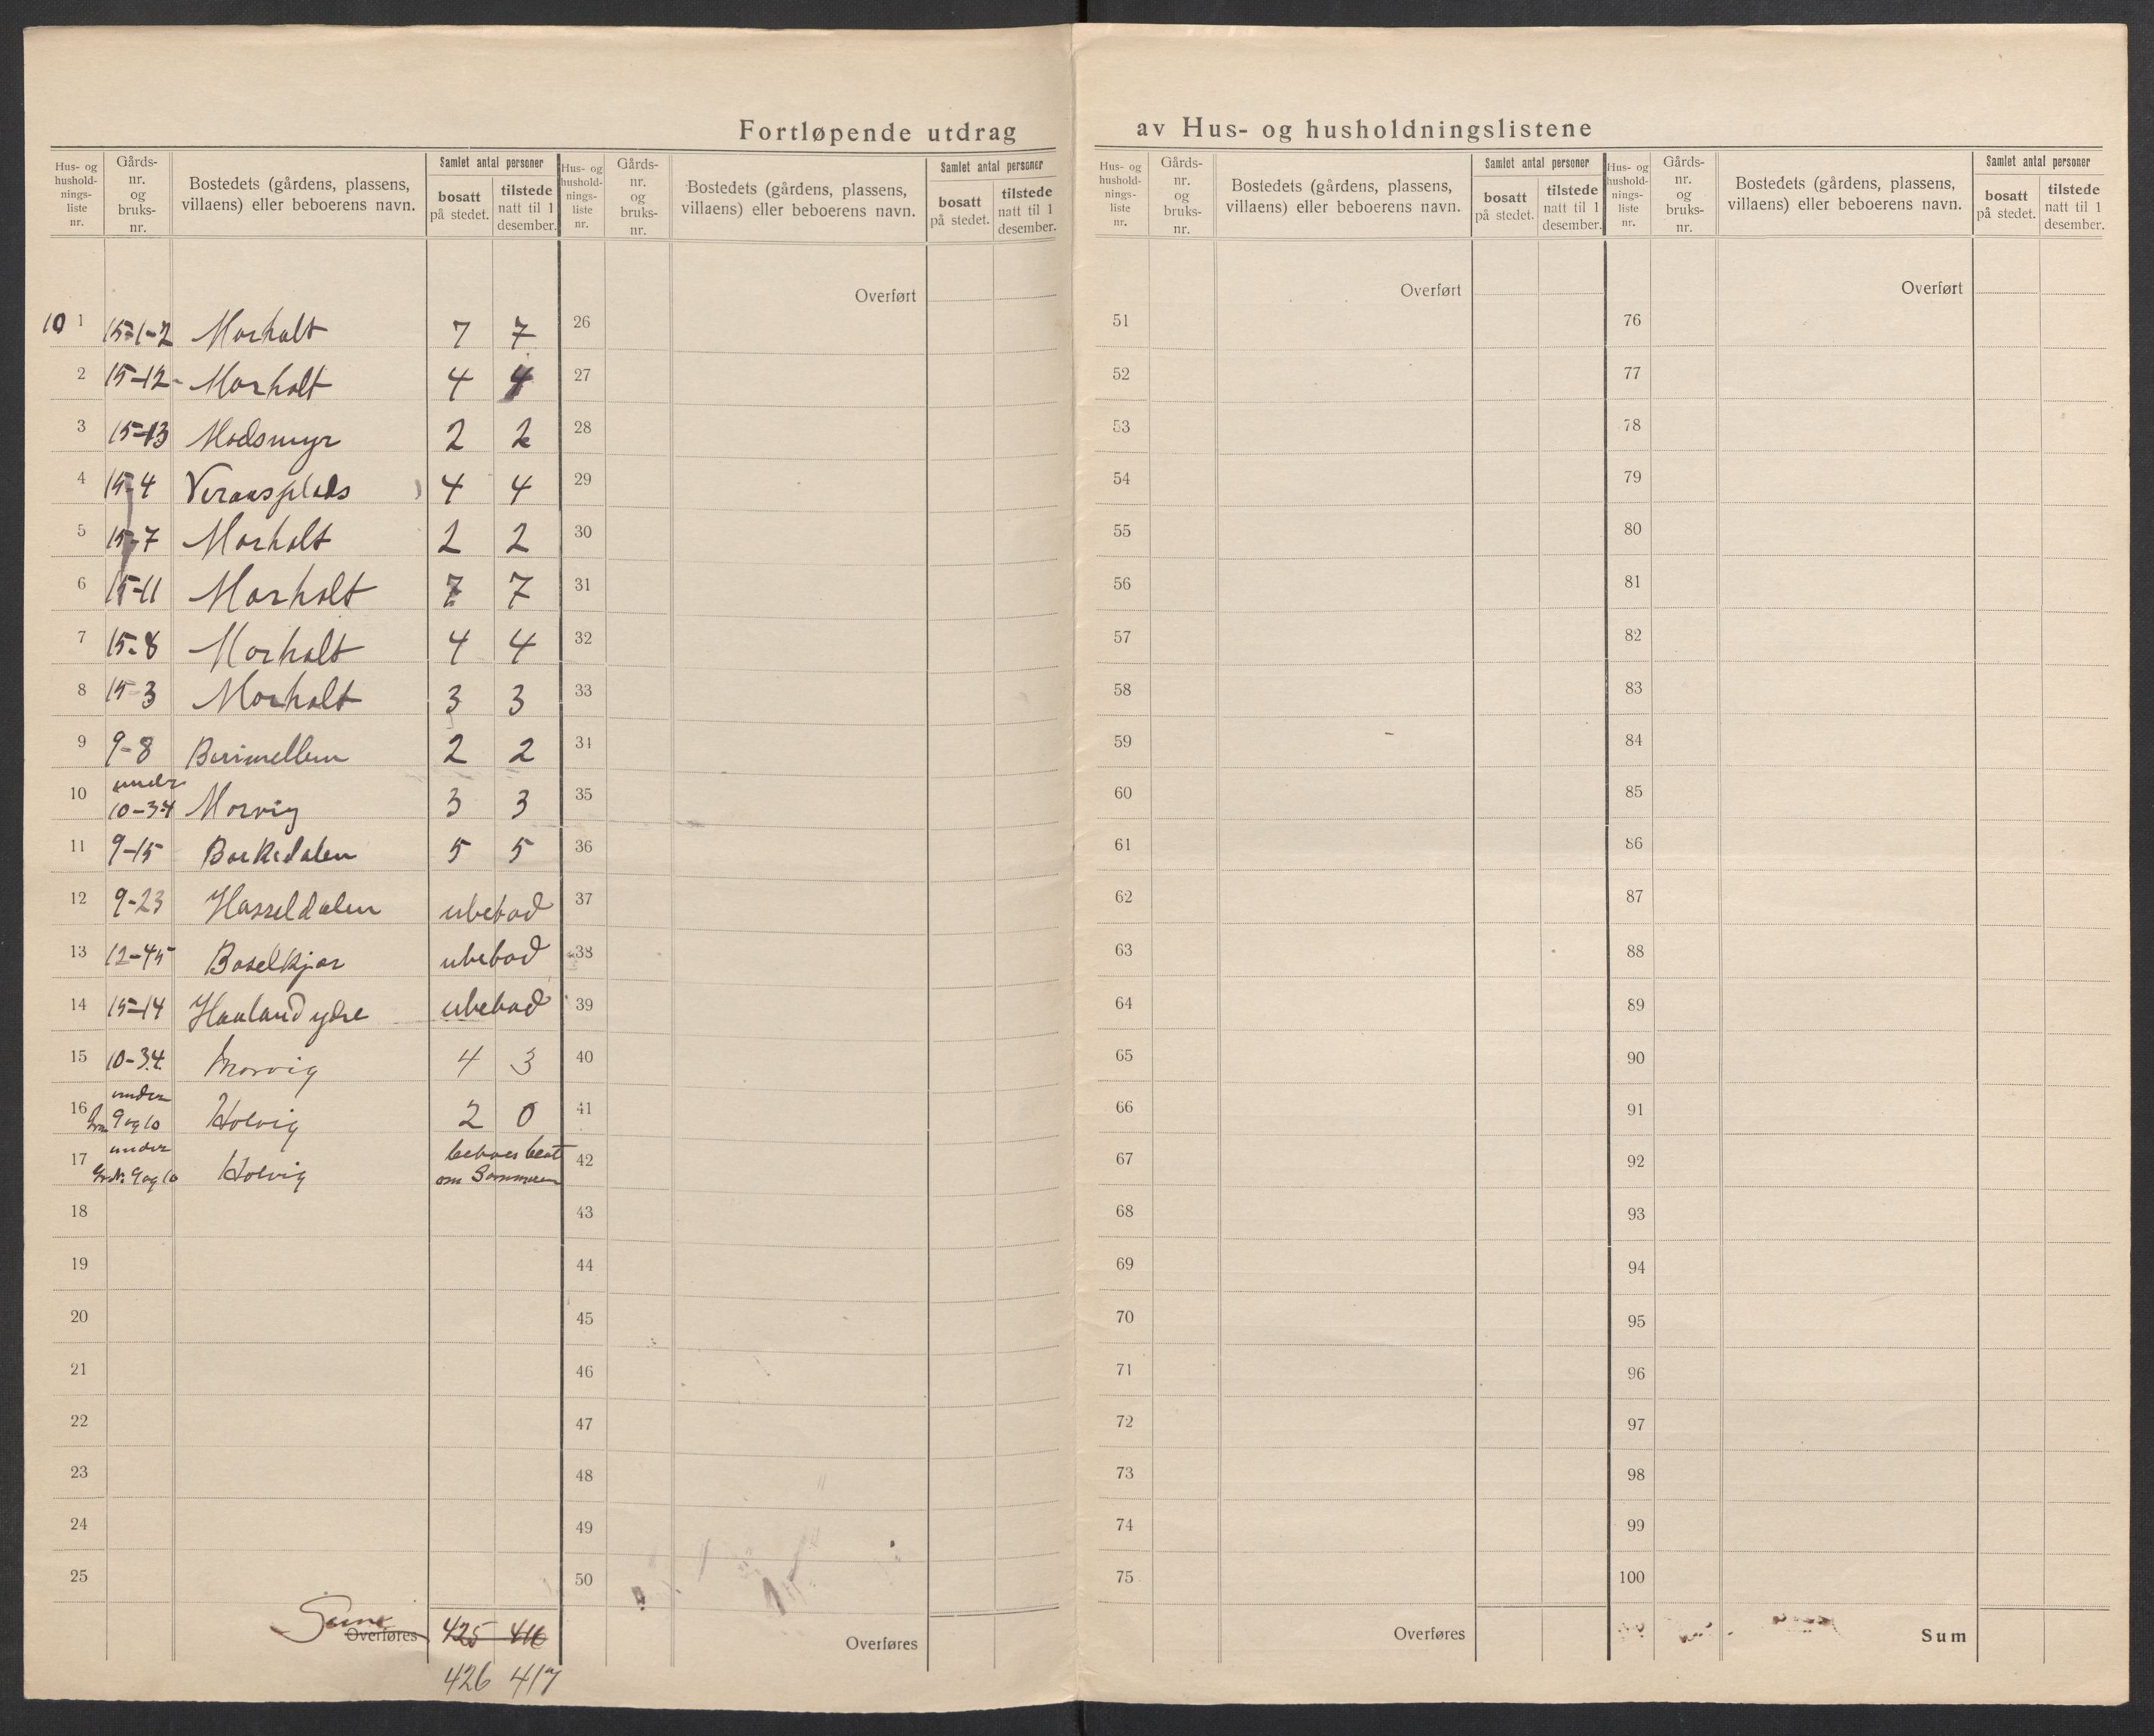 Fortløpende utdrag av Hus- og husholdningslistene
Hus- og hushold-nings-liste nr. Gårds-nr. og bruks-nr. Bostedets (gårdens, plassens, villaens) eller beboerens navn. Samlet antal personer bosatt på stedet. tilstede natt til 1 desember.
Hus- og hushold-nings-liste nr. Gårds-nr. og bruks-nr. Bostedets (gårdens, plassens, villaens) eller beboerens navn. Samlet antal personer bosatt på stedet. tilstede natt til 1 desember.
Hus- og hushold-nings-liste nr. Gårds-nr. og bruks-nr. Bostedets (gårdens, plassens, villaens) eller beboerens navn. Samlet antal personer bosatt på stedet. tilstede natt til 1 desember.
Hus- og hushold-nings-liste nr. Gårds-nr. og bruks-nr. Bostedets (gårdens, plassens, villaens) eller beboerens navn. Samlet antal personer bosatt på stedet. tilstede natt til 1 desember.
Overført Overført Overført
10 1 15-1-2 Morholt 7 7 26 51 76
2 15-12- Morholt 4 4 27 52 77
3 15-13 Modsmyr 2 2 28 53 78
4 15-4 4 4 29 54 79
5 15-7 Morholt 2 2 30 55 80
6 15-11 Morholt 7 7 31 56 81
7 15-8 Morholt 4 4 32 57 82
8 15-3 Morholt 3 3 33 58 83
9 9-8 2 2 34 59 84
10 under 10-34 Morvig 3 3 35 60 85
11 9-15 Barkedalen 5 5 36 61 86
12 9-23 Hasseldalen ubebod 37 62 87
13 12-45 Boselkjær ubebod 38 63 88
14 15-14 Haaland ydre ubebod 39 64 89
15 10-34 Morvig 4 3 40 65 90
16 under 9 og 10 Holvig 2 0 41 66 91
17 under 9 og 10 Holvig beboes om Sommeren 42 67 92
18 43 68 93
19 44 69 94
20 45 70 95
21 46 71 96
22 47 72 97
23 48 73 98
24 49 74 99
25 50 75 100
Overføres 425 416 Overføres Overføres Sum
426 417